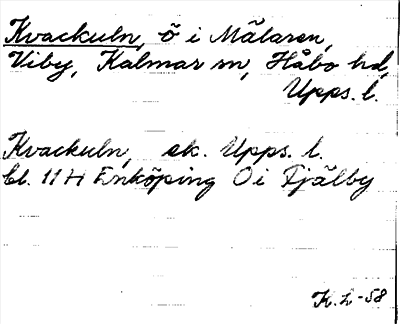 Kvackuln, ö i Mälaren,
Viby, Kalmar sn, Håbo hd,
Upps. l.
Kvackuln, ek. Upps. l.
bl. 11 H Enköping O i Fjälby
K.L-58